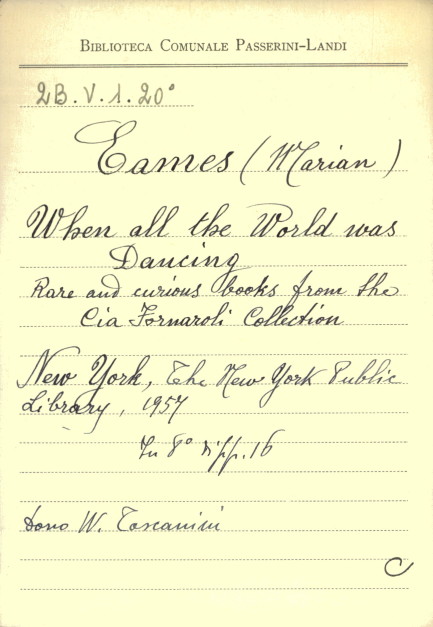 BIBLIOTECA COMUNALE PASSERINI-LANDI
2B.V.1.20°
Eames (Marian)
When all the World was
Dancing
Rare and curious books from the
Cia Fornaroli Collection
New York, The New York Public
Library, 1957
In 8° pp. 16
Dono W. Toscanini
C